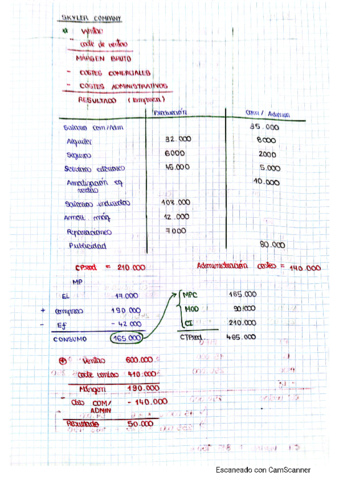 SKYLER COMPANY
a Ventas
- coste de ventas
MARGEN BRUTO
- COSTES COMERCIALES
- COSTES ADMINISTRATIVOS
RESULTADO (Empresa)
Producción Com / Admon
Salario com/adm 35.000
Alquiler 32.000 8000
Seguro 6000 2000
45.000 5.000
Amortización eq 10.000
Salarios indirectos 108.000
Amort. máq 12.000
Reparaciones 7000
Publicidad 80.000
CProd = 210.000 Administración costes = 140.000
MP
EI 17.000 MPC 165.000
+ compras 190.000 MOD 90.000
- Ef - 42.000 CI 210.000
CONSUMO 165.000 CTProd 465.000
Ventas 600.000
coste ventas 410.000
Margen 190.000
- Coste COM/ADMIN - 140.000
Resultado 50.000
Escaneado con CamScanner